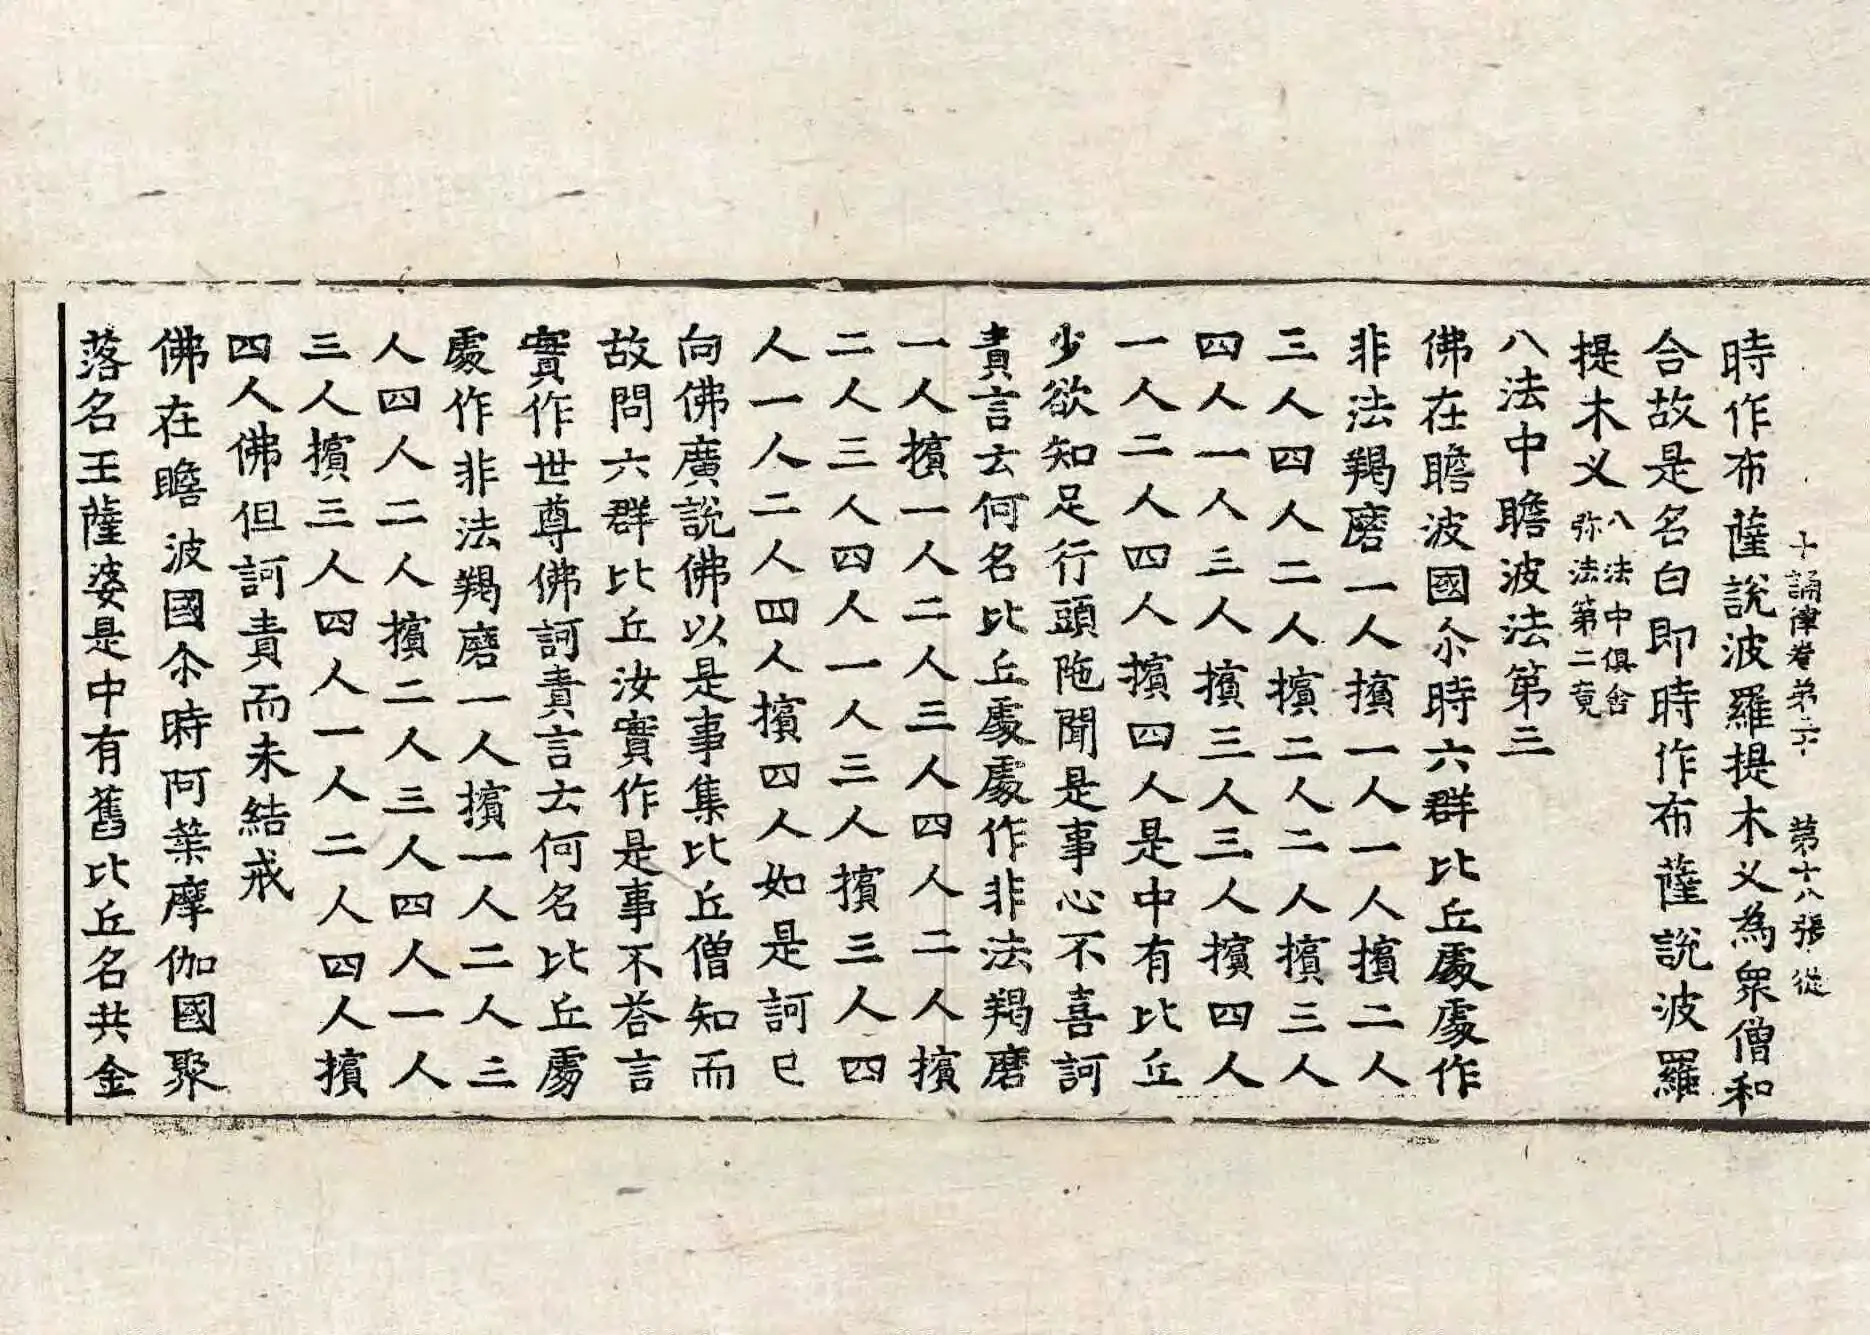 十誦律卷第三十 第十八張 從
時作布薩說波羅提木义為衆僧和
合故是名白即時作布薩說波羅
提木义 八法中俱舍
弥法第二竟
八法中瞻波法第三
佛在瞻波國尒時六群比丘處處作
非法羯磨一人擯一人一人擯二人
三人四人二人擯二人二人擯三人
四人一人三人擯三人三人擯四人
一人二人四人擯四人是中有比丘
少欲知足行頭陁聞是事心不喜訶
責言云何名比丘處處作非法羯磨
一人擯一人二人三人四人二人擯
二人三人四人一人三人擯三人四
人一人二人四人擯四人如是訶已
向佛廣說佛以是事集比丘僧知而
故問六群比丘汝實作是事不荅言
實作世尊佛訶責言云何名比丘處
處作非法羯磨一人擯一人二人三
人四人二人擯二人三人四人一人
三人擯三人四人一人二人四人擯
四人佛但訶責而未結戒
佛在瞻波國尒時阿葉摩伽國聚
落名王薩婆是中有舊比丘名共金